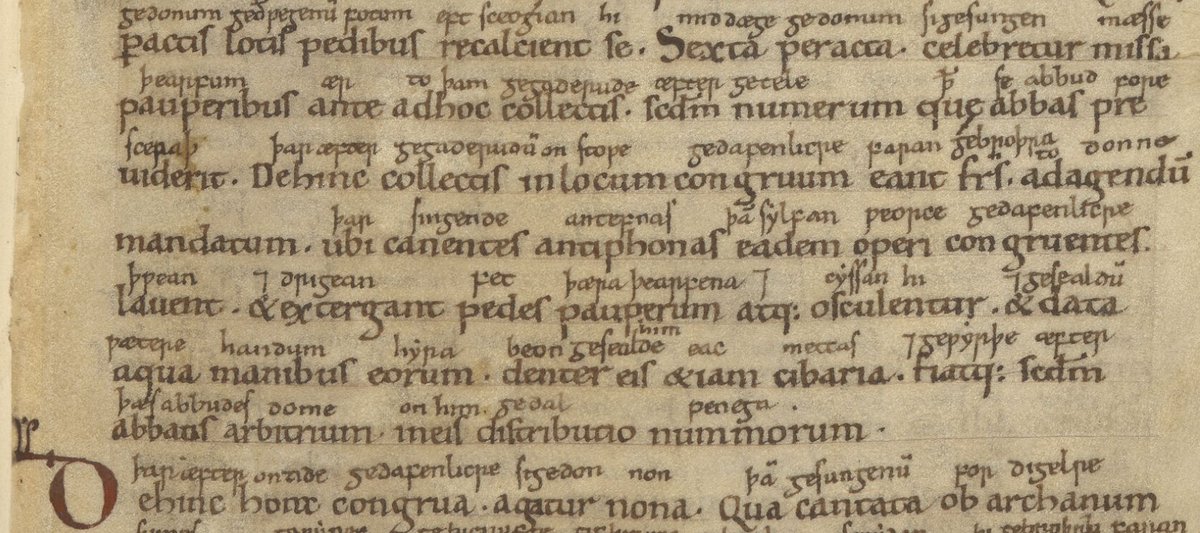 gedonum geþpegenū fotum eft sceogian hi middæge gedonum sigesungen mæsse
Pactis lotis pedibus recalcient se. Sexta peracta. celebretur missa
þearfum ær to þam gegaderude æfter getele þ se abbud fore
pauperibus ante adhoc collectis. scdm numerum quę abbas pre
sceƿaþ þaræfter gegaderudū on stoƿe gedafenlicre faran gebroþra to donne
uiderit. Dehinc collectis inlocum congruum eant frs. adagendū
þar singende antefnas þā sylfan ƿeorce gedafenlicre
mandatum. ubi canentes antiphonas eadem operi congruentes.
þƿean ⁊ drigean fet þæra þearfena ⁊ cyssan hi ⁊gesealdū
lavent. & extergant pedes pauperum atq: osculentur. & data
ƿætere handum hyra beon gesealde him eac mettas ⁊geƿyrþe æfter
aqua manibus eorum. denter eis &iam cibaria. fiatq: scdm
þæs abbudes dome on him. gedal penega.
abbatis arbitrium. ineis distributio nummorum.
þaræfter ontide gedafenlicre sigedon non þā gesungenū for digelre
Dehinc horæ congrua. agatur nona. Qua cantata ob archanum